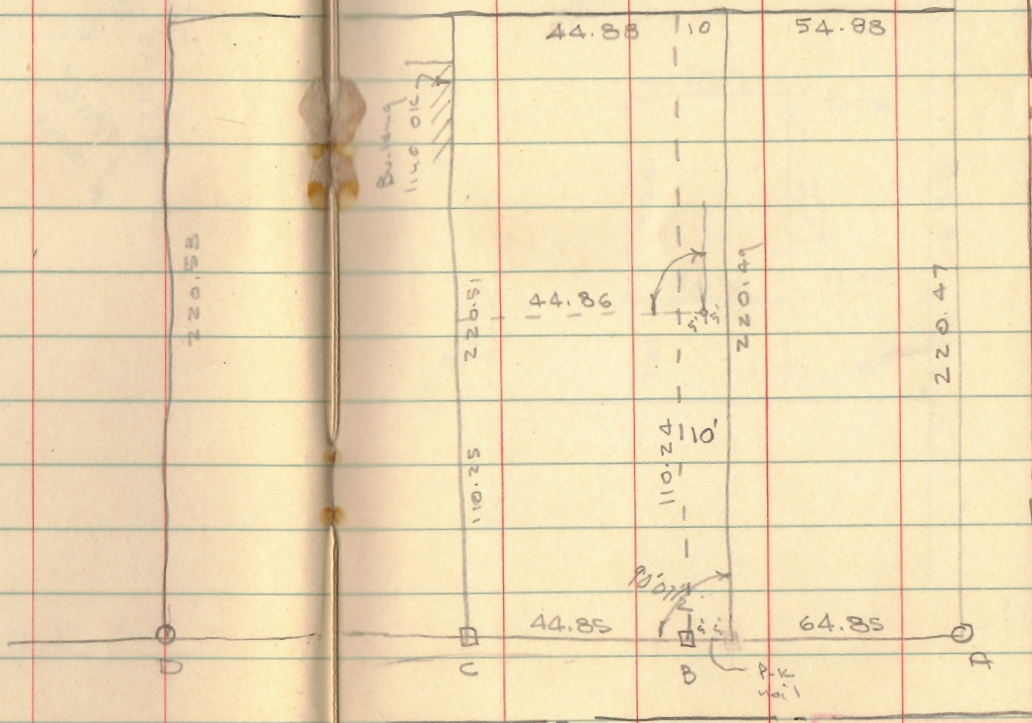 44.88
10
54.88
Building
line OK
220.53
220.51
44.86
5' 5'
220.49
220.47
110.25
110.24
10'
44.85
64.85
D
C
B
P-K
nail
A